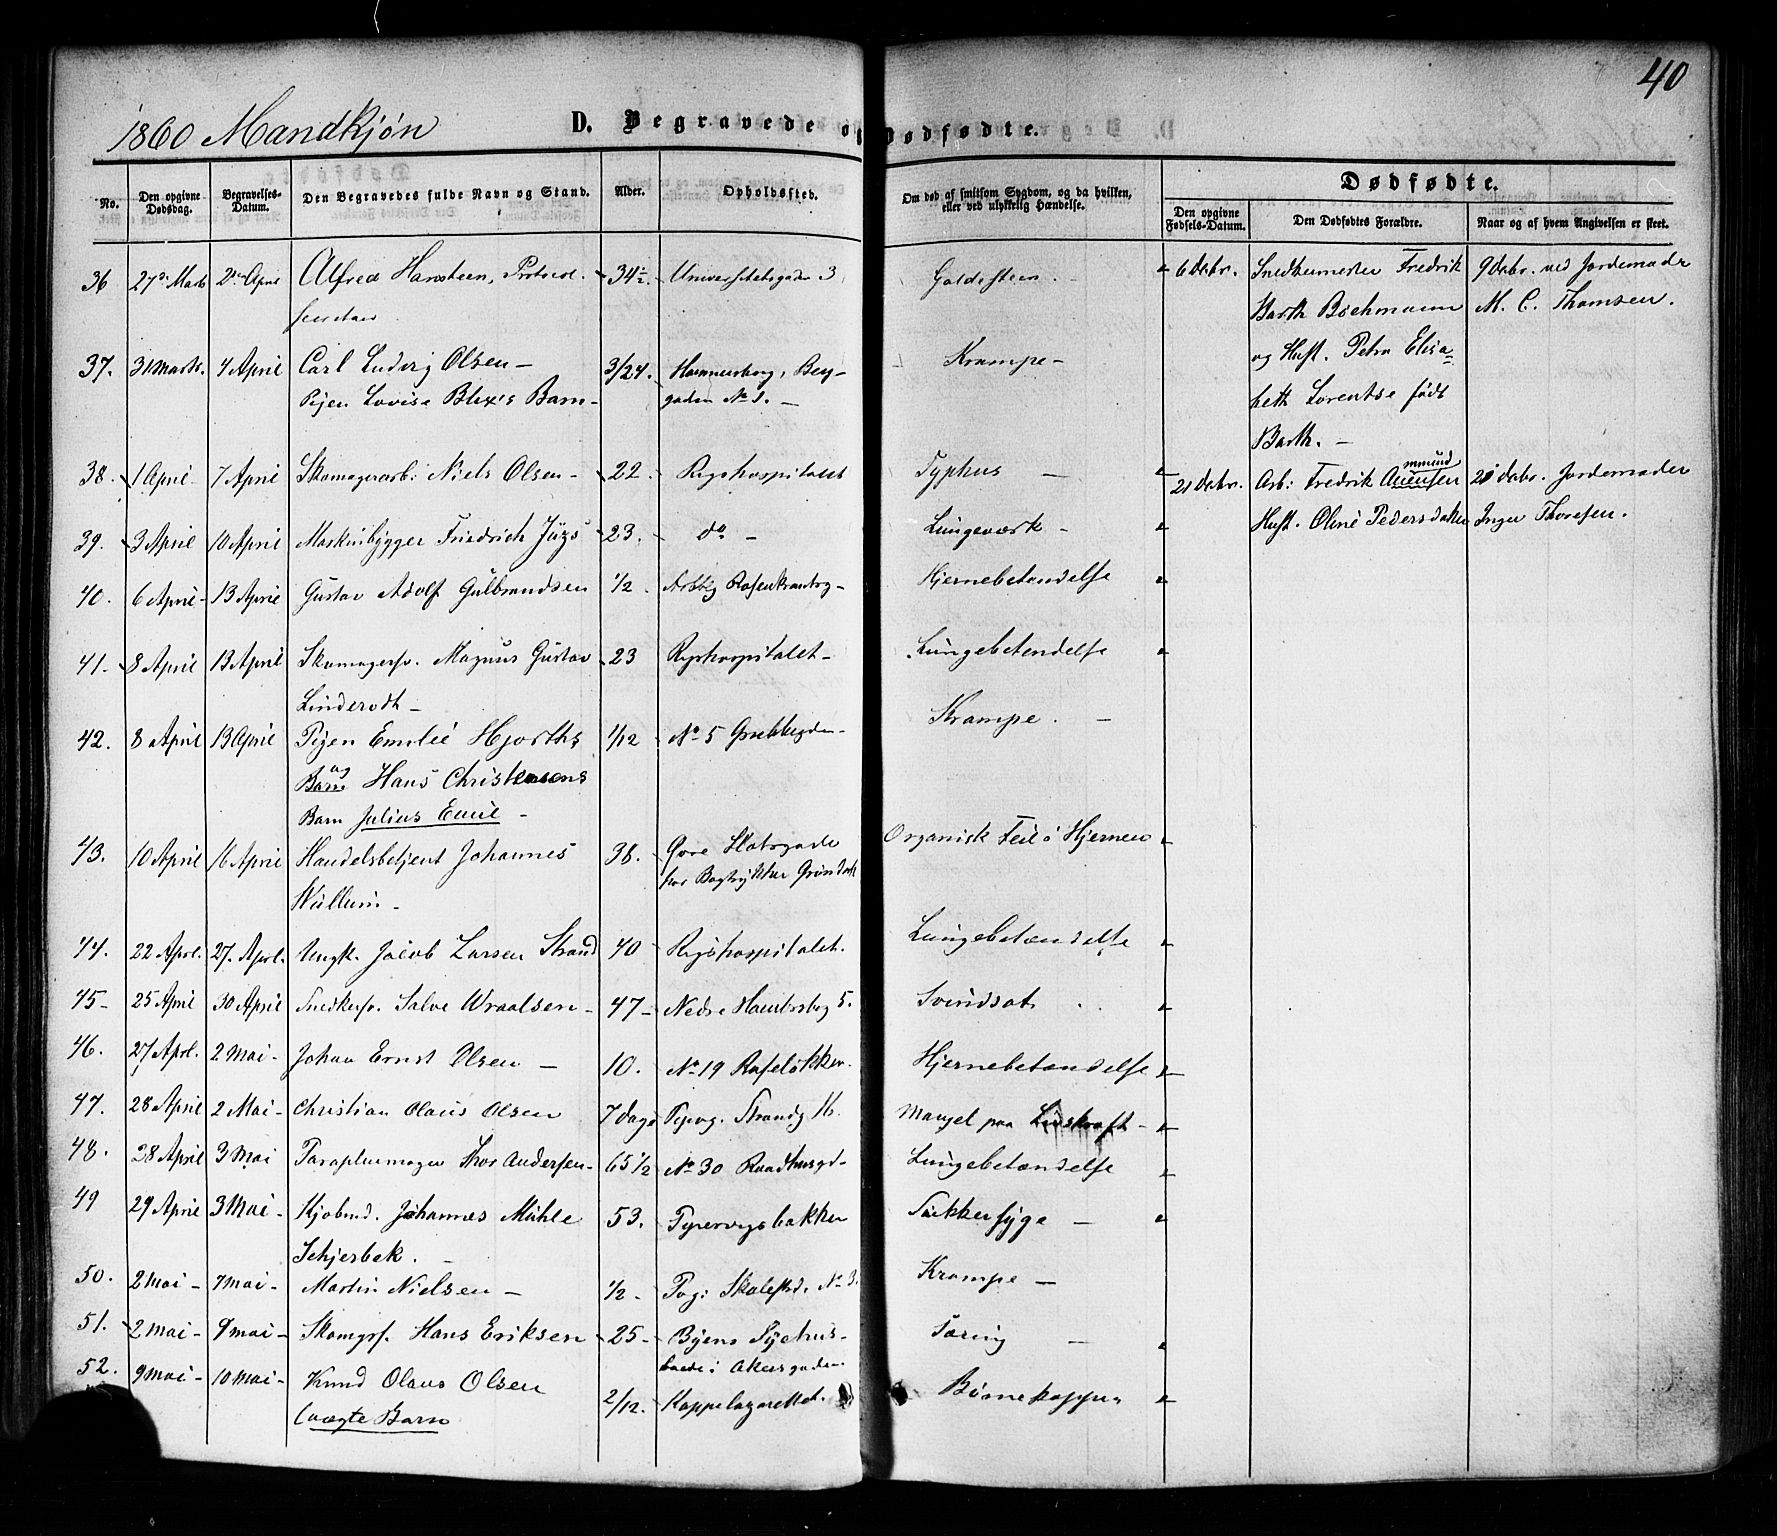 40
1860 Mandkjøn
D. Begravede o
Dødfødte.
No.
Den opgivne Dødsdag.
Begravelses-Datum.
Den Begravedes fulde Navn og Stand.
Alder.
Opholdssted.
Om død af smitsom Sygdom, og da hvilken, eller ved ulykkelig Hændelse.
Dødfødte.
Den opgivne Fødsels-Datum.
Den Dødfødtes Forældre.
Naar og af hvem Angivelsen er skeet.
36 27de Marts 2den April Alfred Hansteen, 34½. Universitetsgaden 3 Galdesteen.
37. 31 Marts. 4 April Carl Ludvig Olsen – 3/24. Hammersborg, Berg- Krampe –
Pigen Lovise Blix's Barn – gaden No 1. –
38. 1 April – 7 April Skomagerarb: Niels Olsen – 22. Rigshospitalet Typhus –
39. 3 April 10 April Maskinbygger Friedrich 23. do – Lungeværk –
40. 6 April – 13 April Gustav Adolf Gulbrandsen 1/2. Rosenkrantzg – Hjernebetændelse
41. 8 April 13 April Skomagersv. Magnus Gustav 23 Rigshospitalet – Lungebetændelse
Linderoth –
42. 8 April 13 April Pigen Emilie Hjorths 1/12 No 5 Grubbegaden – Krampe. –
og
Barn Hans Christensens
Barn Julius Emil –
43. 10 April 16 April Handelsbetjent Johannes 38. Øvre Slotsgade Organisk Feil i Hjernen
Wullum – hos Bogtrykker Grøndahl
44. 22 Aprl. 27. Aprl. Ungk. Jacob Larsen Strand 40 Rigshospitalet. Lungebetændelse
45 – 25 April 30 April Snedkersv. Salve Wraalsen – 47 – Nedre Hambrsbg 5. Svindsot.
46. 27 Aprl. 2 Mai – Johan Ernst Olsen – 10. No 19 Røfeløkken. Hjernebetændelse
47. 28 April 2 Mai – Christian Olaus Olsen 7 dage Pipvg. Strandg Mangel paa Livskraft –
48. 28 April 3 Mai Paraplumager Thor Andersen – 65 1/2 No 30 Raadhusgd – Lungebetændelse
49 29 April 3 Mai – Kjøbmd. Johannes Mühle 53. Pipervigsbakken Sukkersyge –
Schjerbek. –
50. 2 Mai – 7 Mai – Martin Nielsen – 1/2 – Pvg: No 3. Krampe –
51. 2 Mai – 9 Mai – Skomgrs. Hans Eriksen 25 – Byens Sygehus – Tæring –
i Akersgaden
52. 9 Mai – 10 Mai – Knud Olaus Olsen 2/12. Koppelazarettet. Børnekopper
(uægte Barn
6 Debr. Snedkermester Fredrik 9 Debr. ved Jordemoder
Barth Bochmann M. C. Thomsen.
og Hust. Petra Elisa=
beth Lorentse født
Barth. –
mmund
21 Debr. Arb: Fredrik Amensen 21 Debr. Jordemoder
Hust. Oline Pedersdatter Inger Thoresen.